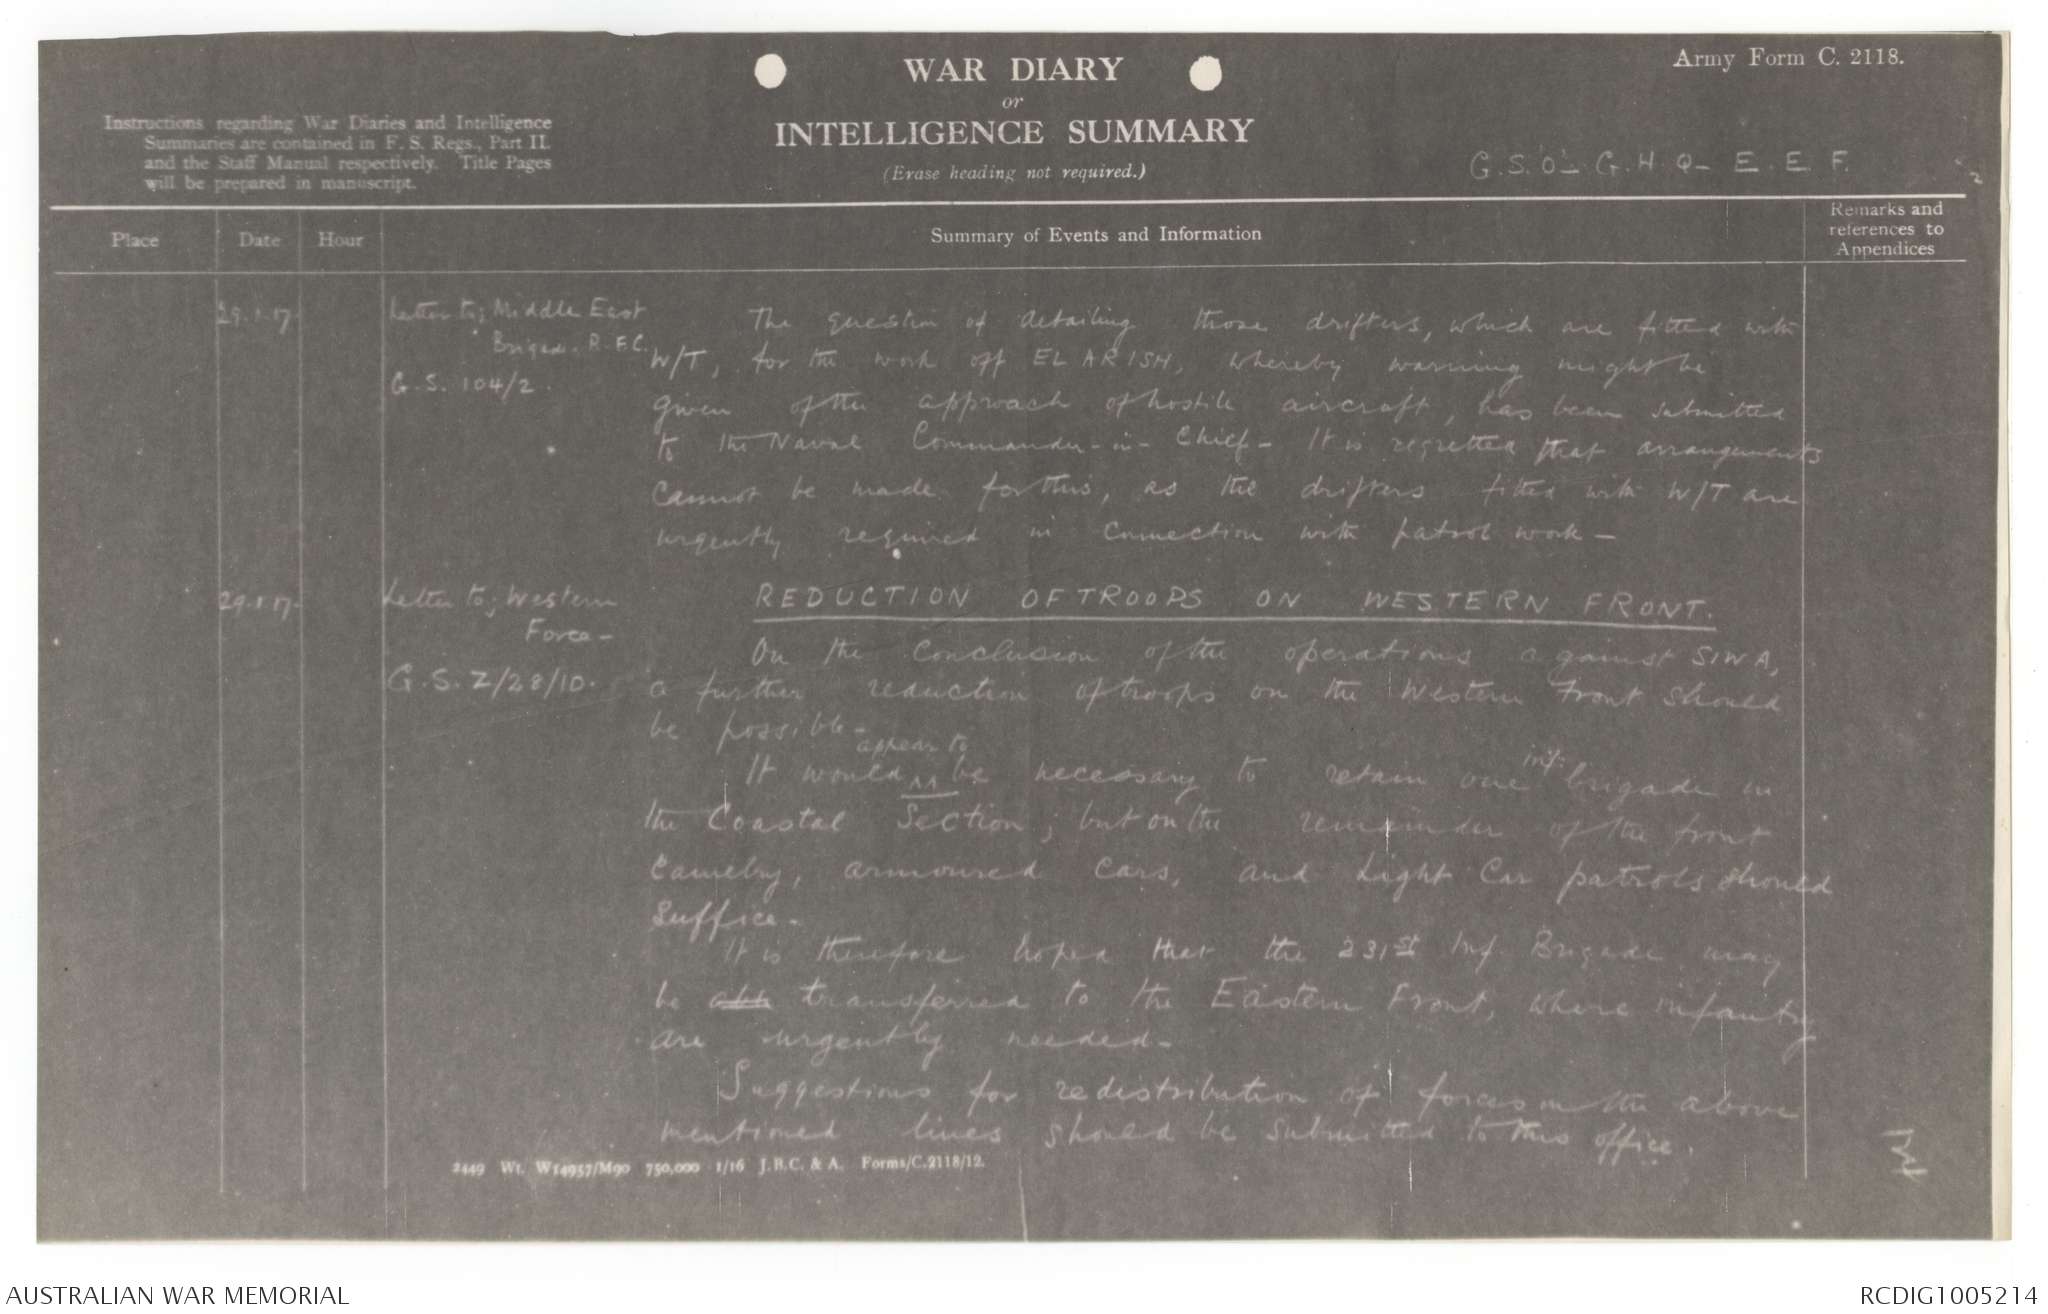 Army Form C. 2118.
WAR DIARY
or
INTELLIGENCE SUMMARY
(Erase heading not required.)
Instructions regarding War Diaries and Intelligence
Summaries are contained in F. S. Regs., Part II.
and the Staff Manual respectively. Title Pages
will be prepared in manuscript.
G.S. "O" - G.H.Q - E.E.F.
2
Place Date Hour Summary of Events and Information Remarks and
references to
Appendices
29.1.17. Letter to; Middle East
Brigade R.F.C.
G.S. 104/2.
The question of detailing those drifters, which are fitted with
W/T, for the work off EL ARISH, whereby warning might be
given of the approach of hostile aircraft, has been submitted
to the Naval Commander-in-Chief- It is regretted that arrangements
cannot be made for this, as the drifters fitted with W/T are
urgently required in connection with patrol work -
29.1.17. Letter to; Western
Force -
G.S.Z/28/10.
REDUCTION OF TROOPS ON WESTERN FRONT.
On the conclusion of the operations against SIWA,
a further reduction of troops on the Western Front should
be possible -
appear to
It would ^^ be necessary to retain one inf: brigade in
the Coastal Section; but on the remainder of the front
Camelry, armoured cars, and Light Car patrols should
suffice -
It is therefore hoped that the 231st Inf. Brigade may
be transferred to the Eastern Front, where infantry
are urgently needed -
Suggestions for redistribution of forces on the above
mentioned lines should be submitted to this office.
2449 Wt. W14957/M90 750,000 1/16 J.B.C. & A. Forms/C.2118/12.
AUSTRALIAN WAR MEMORIAL
RCDIG1005214